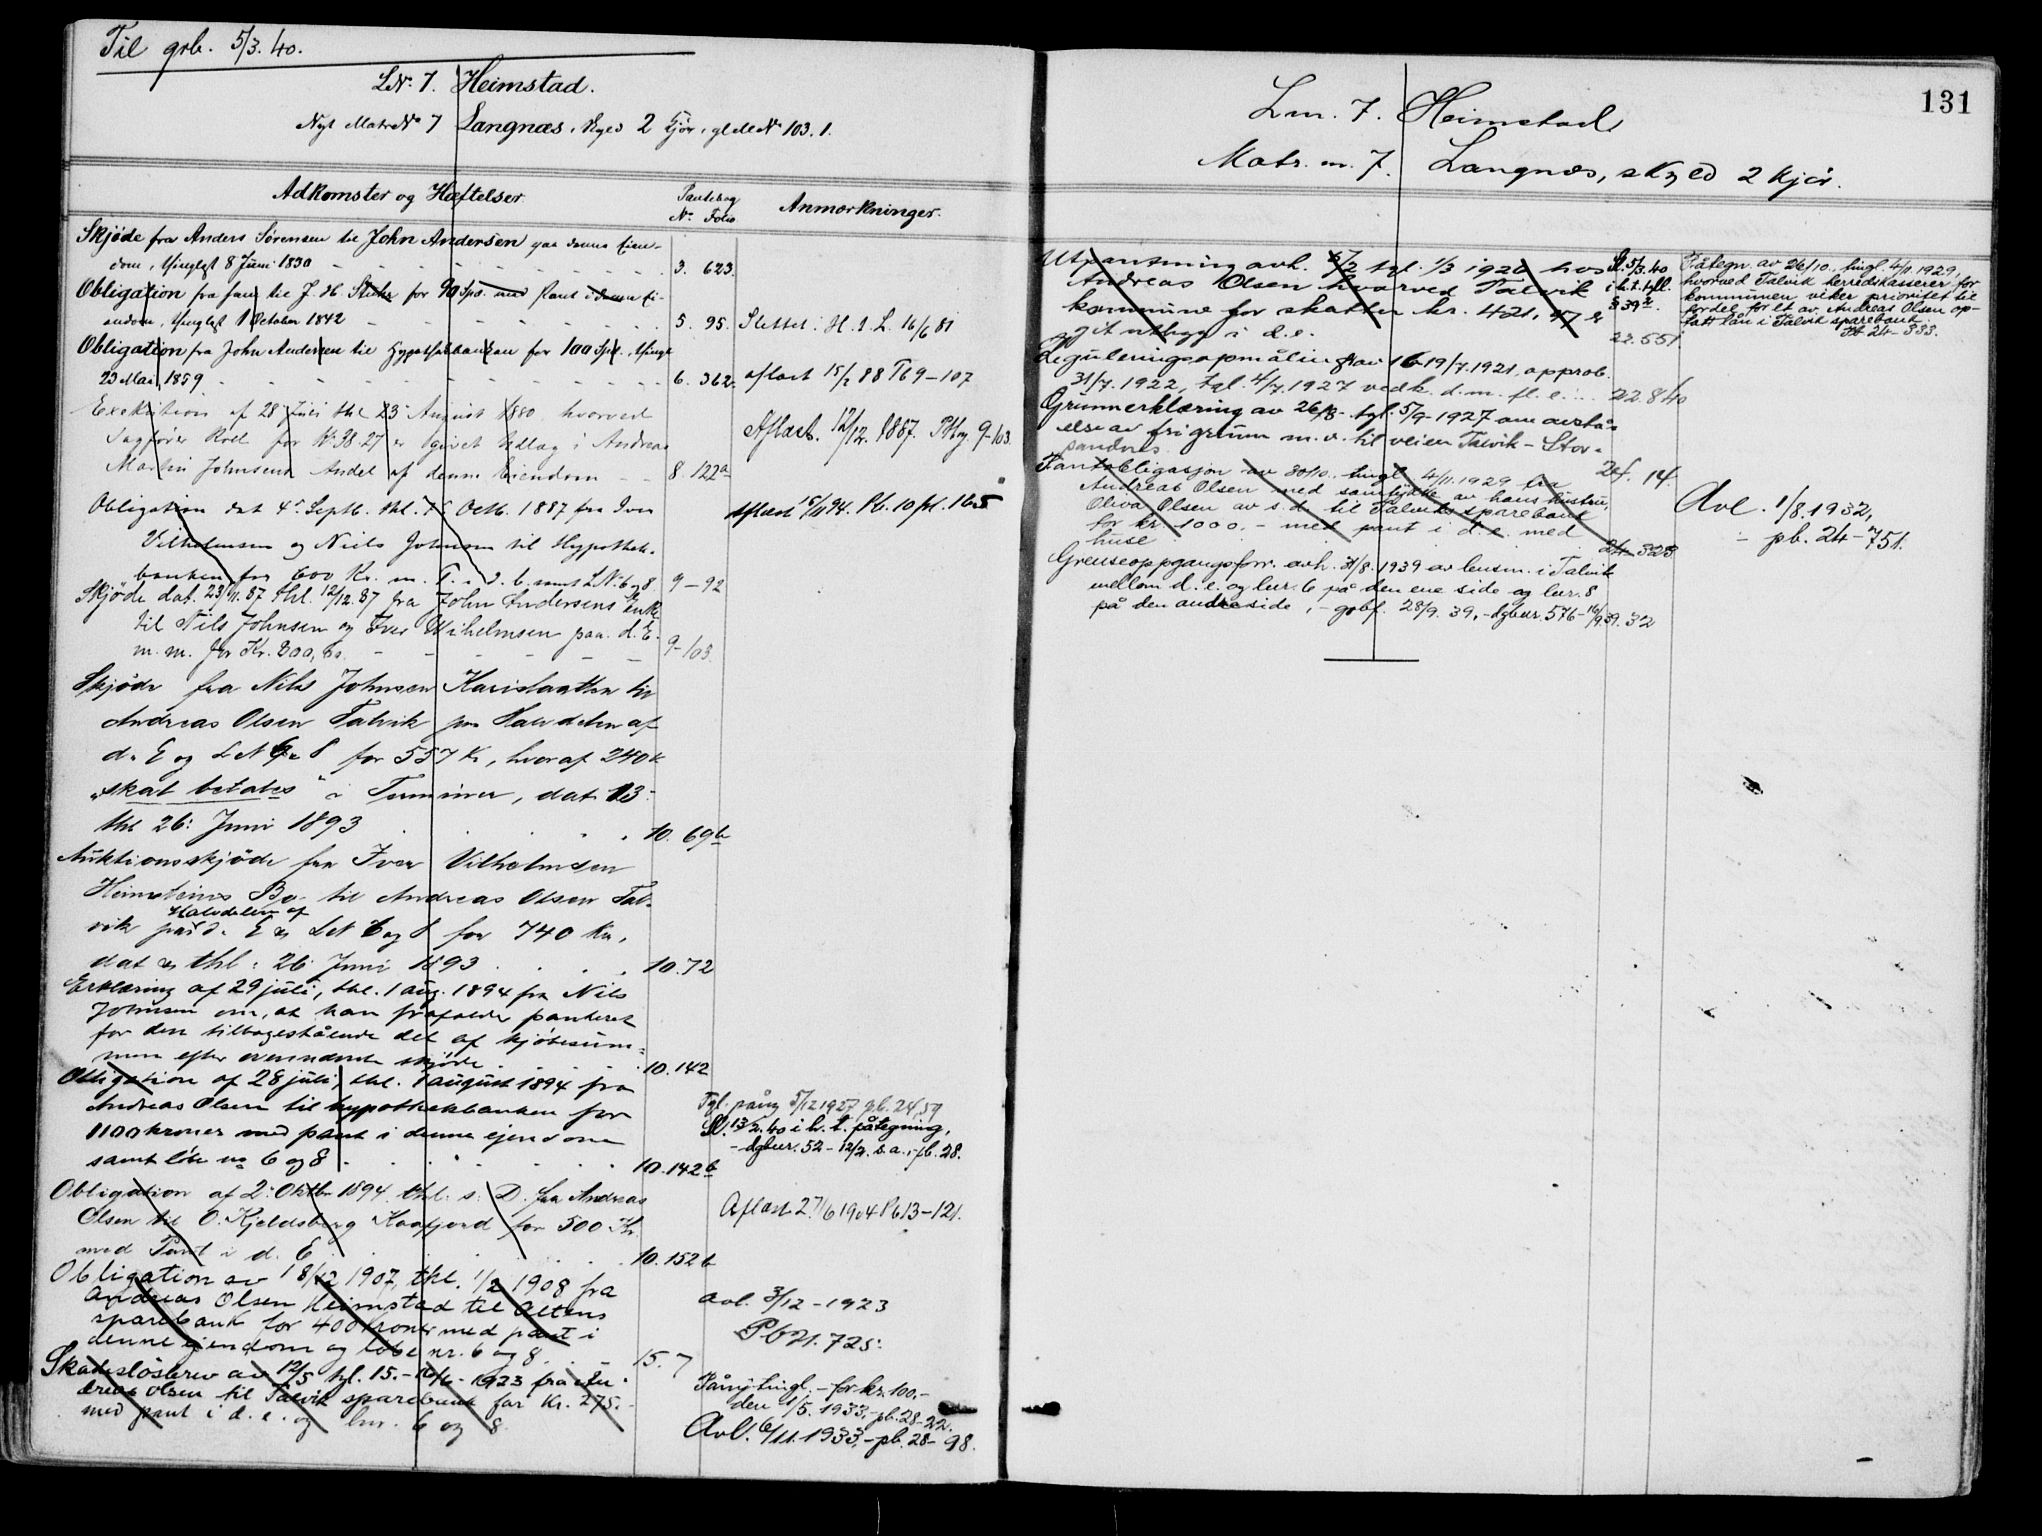 Til grb. 5/3.40.
LNo 7. Heimstad.
Nyt MatrNo 7 Langnæs, Skyld 2 Fjør, gl MNo 103.1.
Adkomster og Hæftelser.
Pantebog
No Folio
Anmærkninger.
Skjøde fra Anders Sørensen til John Andersen paa denne Eien-
dom, thinglyst 8 Juni 1830
3. 623.
Obligation fra fam til J. H. for 90 Spd. med Pant i denne Ei-
endom, thinglyst 1 October 1842
5. 95. Slettet i H. t. L. 16/6 81
Obligation fra John Andersen til Hypothekbanken for 100 Spd., thingl.
23 Mai 1859
6. 362. aflæst 15/2 88 P69-107
Exekution af 28 Juli thl 23 August 1880 hvorved
Sagfører Roll for Kr. 38.27 er givet Udlæg i Andreas
Martin Johnsens Andel af denne Eiendom
8 122a
Aflæst. 12/12. 1887. Pbg. 9-103.
Obligation dat 4de Septb. thl. 7 Octb. 1887 fra Iver
Vilhelmsen og Niels Johnsen til Hypothek-
banken for 600 Kr. m. P. i d. E. samt LN 6 og 8
9-92
aflæst 15/11 94. Pb. 10 fol. 165
Skjøde dat. 23/11.87 thl. 12/12.87 fra John Andersens Enke
til Nils Johnsen og Iver Wilhelmsen paa d. E.
m. m. for Kr. 800,00.
9-103.
Skjøde fra Nils Johnsen til
Andreas Olsen Talvik paa Halvdelen af
d. E og LN 6 & 8 for 557 Kr, hvoraf 240 Kr
"skal betales" i Terminer, dat 13.
thl 26. Juni 1893
10. 69b
Auktionsskjøde fra Iver Vilhelmsen
Heimsteins Bo til Andreas Olsen Tal-
Halvdelen af
vik paa d. E & LN 6 og 8 for 740 Kr,
dat & thl. 26 Juni 1893
10.72
Erklæring af 29 juli, thl. 1 aug. 1894 fra Nils
Johnsen om, at han frafalder panteret
for den tilbagestående del af kjøbesum-
men efter skjøde
10.142
Obligation af 28 juli, thl. 1 august 1894 fra
Andreas Olsen til hypothekbanken for
1100 kroner med pant i denne ejendom
samt løbe no 6 og 8
10.142b
Tgl. påny 5/12 1927 pb. 24, 59
Sl. 13/2.40 i h. t. påtegning,
- dgbnr. 52 - 12/2. s.a. - pb. 28.
Obligation af 2. Oktbr 1894 thl. s. D. fra Andreas
Olsen til O. Kjeldsberg Kaafjord for 500 Kr
med Pant i d. E
10.152b
Aflæst 27/6 1904 Pb 13-121.
Obligation av 18/12 1907, thl. 1/2 1908 fra
Andreas Olsen Heimstad til Altens
sparebank for 400 kroner med pant i
denne ejendom og løbe nr. 6 og 8
15. 7
avl. 3/12-1923
Pb 21. 725.
Skadesløsbrev av 12/5 tgl. 15.- 16/6 1923 fra An-
dreas Olsen til Talvik sparebank for Kr. 275.-
med pant i d. e. og lnr. 6 og 8.
Påny tingl. - for kr. 100.-
den 1/5. 1933, - pb. 28-22.
Avl. 6/11. 1933, - pb. 28-98.
131
Lnr. 7. Heimstad
Matr. nr. 7. Langnæs, skyld 2 kjør.
Utpantning avh. 5/2 tgl. 1/3 1926 hos
Andreas Olsen hvorved Talvik
kommune for skatter kr. 421,47 er
git utlegg i d.e.
22.551.
Sl. 5/3.40
i h.t. tgll.
§ 39
Påtegn. av 26/10. tingl. 4/11 1929,
hvorved Talvik herredskasserer for
kommunen viker prioritet til
fordel for et av Andreas Olsen op-
tatt lån i Talvik sparebank.
Pb 24-333.
Reguleringsopmåling av 16-19/7. 1921. approb.
31/7. 1922, tgl. 4/7. 1927 vedk. d. m. fl. e.
22.840
Grunnerklæring av 26/8- tgl. 5/9-1927 om avstå-
else av fri grunn m.v. til veien Talvik - Stor-
sandnes.
24. 14.
Pantobligasjon av 30/10. tingl. 4/11.1929 fra
Andreas Olsen med samtykke av hans hustru,
Oliva Olsen av s.d. til Talvik sparebank
for kr. 1000.- med pant i d.e. med
huse
24-325
Avl. 1/8.1932,
- pb. 24-751.
Grenseoppgangsforr. avh. 31/8. 1939 av lensm. i Talvik
mellem d.e. og lnr. 6 på den ene side og lnr. 8
på den andre side, - gobf. 28/9. 39, - dgbnr. 576 - 16/9.39. 32